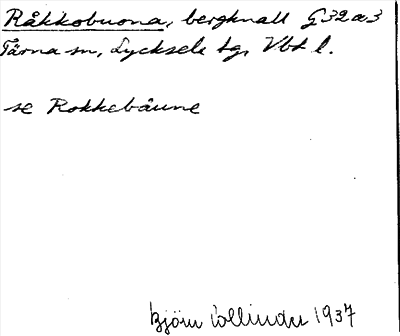 Råkkobuona, bergknall G32a3
Tärna sn, Lycksele lg, Vbt l.
se Rokkebåune
Björn Collinder 1937